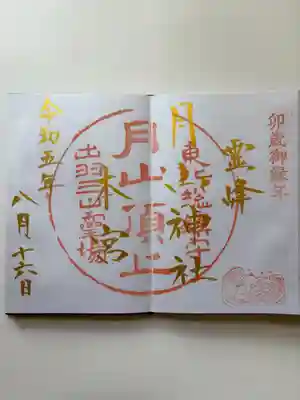 卯歳御縁年
霊峰
月山神社
本宮
月山頂上
出羽三山霊場
令和五年
八月十六日